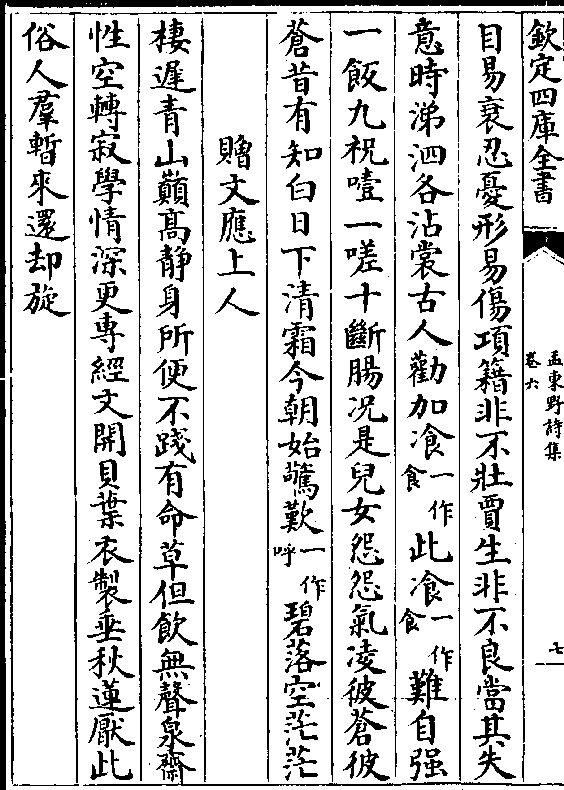 欽定四庫全書
孟東野詩集
卷六
七
目易衰忍憂形易傷項籍非不壯賈生非不良當其失
意時涕泗各沾裳古人勸加飡一作食此飡一作食難自强
一飯九祝噎一嗟十斷腸况是兒女怨怨氣凌彼蒼彼
蒼昔有知白日下清霜今朝始驚歎一作呼碧落空茫茫
贈文應上人
棲遲青山巔髙静身所便不踐有命草但飲無聲泉齋
性空轉寂學情深更專經文開貝葉衣製垂秋蓮厭此
俗人羣暫來還却旋